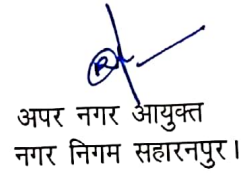 अपर नगर आयुक्त
नगर निगम सहारनपुर।